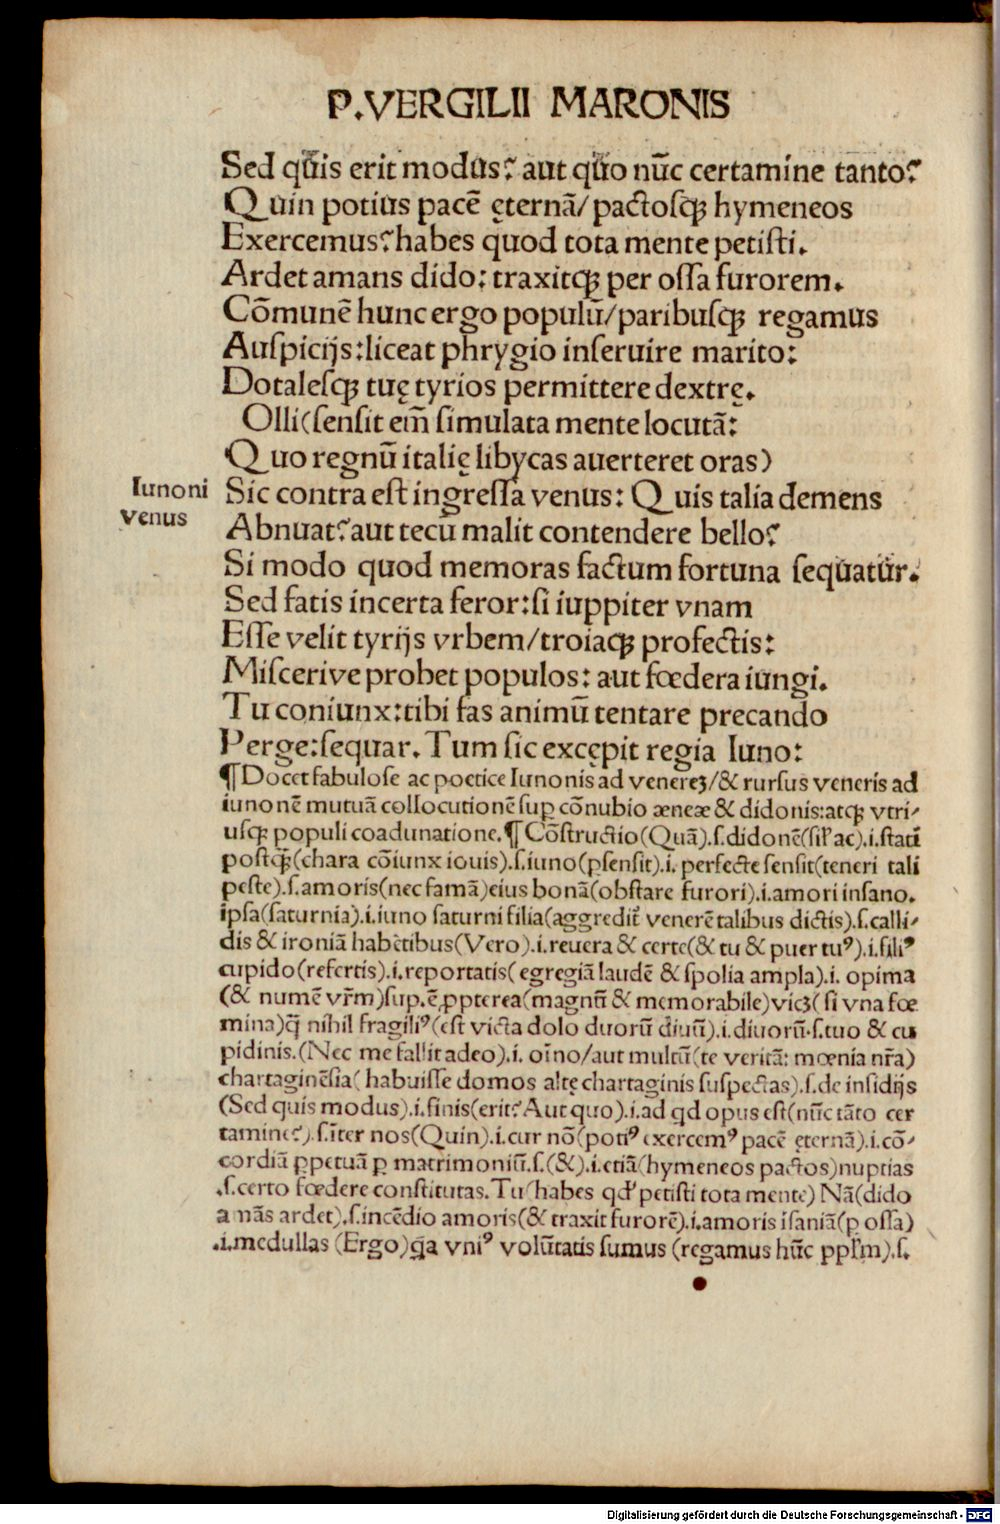 P.VERGILII MARONIS
Sed quis erit modus? aut quo nūc certamine tanto?
Quin potius pacē ęternā/pactosqꝫ hymeneos
Exercemus?habes quod tota mente petisti.
Ardet amans dido: traxitqꝫ per ossa furorem.
Cōmunē hunc ergo populū/paribusqꝫ regamus
Auspicijs:liceat phrygio inseruire marito:
Dotalesqꝫ tuę tyrios permittere dextrę.
Olli(sensit em̄ simulata mente locutā:
Quo regnū italię libycas auerteret oras)
Iunoni
venus
Sic contra est ingressa venus: Quis talia demens
Abnuat?aut tecū malit contendere bello?
Si modo quod memoras factum fortuna sequatur.
Sed fatis incerta feror:si iuppiter vnam
Esse velit tyrijs vrbem/troiaqꝫ profectis:
Miscerive probet populos: aut fœdera iungi.
Tu coniunx:tibi fas animū tentare precando
Perge:sequar. Tum sic excępit regia Iuno:
¶Docet fabulose ac poetice Iunonis ad venereꝫ/& rursus veneris ad
iunonē mutuā collocutionē suꝑ cōnubio æneæ & didonis:atqꝫ vtri⸗
usqꝫ populi coadunatione.¶Cōstructio(Quā).s.didonē(sil̄ ac).i.statī
postqꝫ̄(chara cōiunx iouis).s.iuno(ꝑsensit).i. perfecte sensit(teneri tali
peste).s.amoris(nec famā)eius bonā(obstare furori).i.amori insano.
ipsa(saturnia).i.iuno saturni filia(aggredit̄ venerē talibus dictis).s.calli⸗
dis & ironiā habētibus(Vero).i.reuera & certe(& tu & puer tuꝰ).i.filiꝰ
cupido(refertis).i.reportatis(egregiā laudē & spolia ampla).i. opima
(& numē vr̄m)sup.ē ꝓpterea(magnū & memorabile)vicꝫ(si vna fœ
mina)q̄ nihil fragiliꝰ(est victa dolo duorū diuū).i.diuorū.s.tuo & cu
pidinis.(Nec me fallit adeo).i. oīno/aut multū(te veritā: mœnia nr̄a)
chartaginēsia(habuisse domos altę chartaginis suspectas).s.de insidijs
(Sed quis modus).i.finis(erit?Aut quo).i.ad qd opus est(nūc tāto cer
tamine?).s.īter nos(Quin).i.cur nō(potiꝰ exercemꝰ pacē ęternā).i.cō⸗
cordiā ꝑpetuā ꝑ matrimoniū.s.(&).i.etiā(hymeneos pactos)nuptias
.s.certo fœdere constitutas.Tu(habes qd̄ petisti tota mente) Nā(dido
amās ardet).s.incēdio amoris(& traxit furorē).i.amoris isaniā(ꝑ ossa)
.i.medullas (Ergo)q̄a vniꝰ volūtatis sumus (regamus hūc pp̄lm).s.
Digitalisierung gefördert durch die Deutsche Forschungsgemeinschaft - DFG